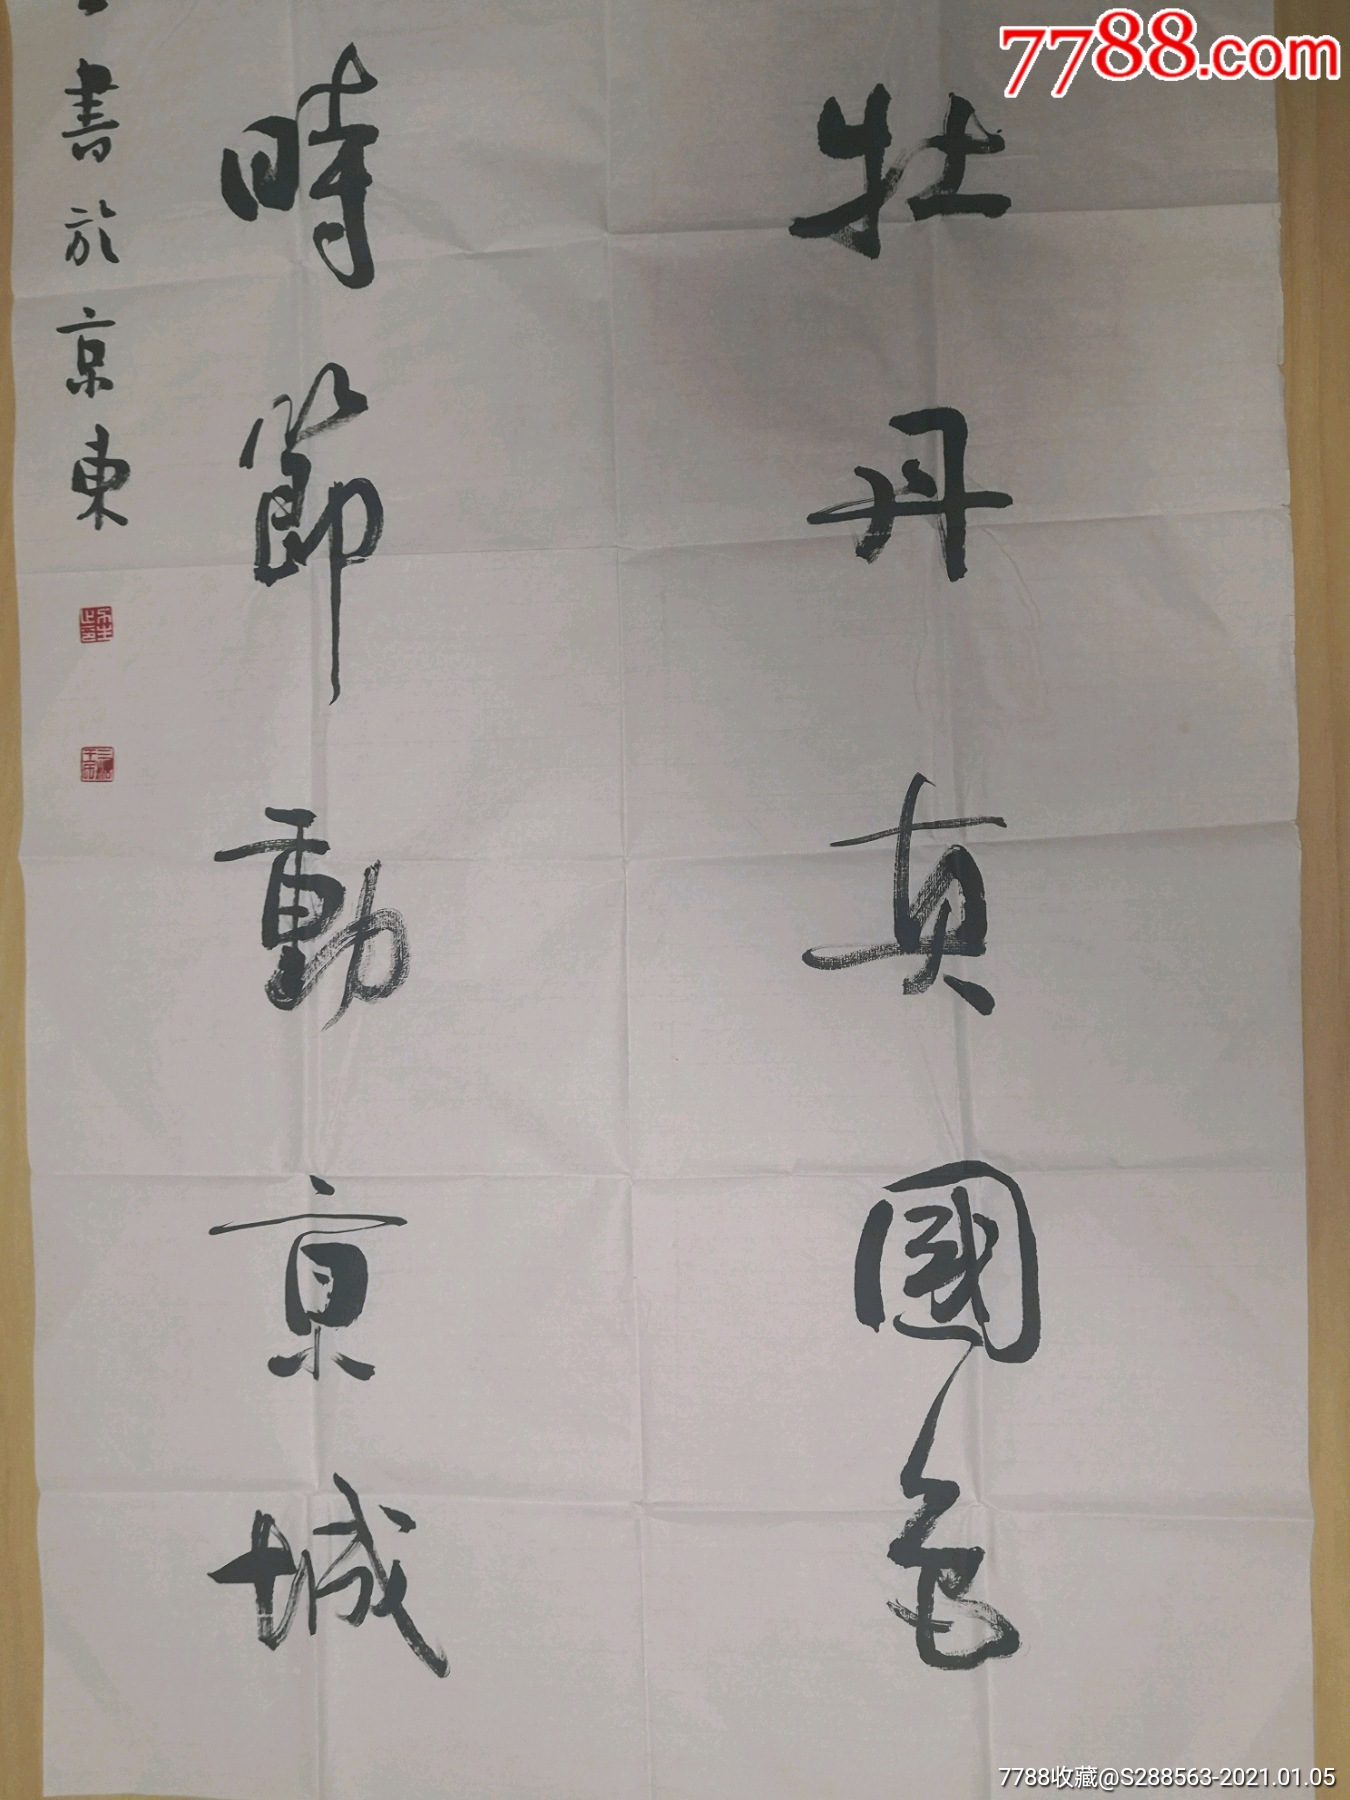 7788.com
牡丹真國色
時節動京城
書於京東
7788收藏@S288563-2021.01.05